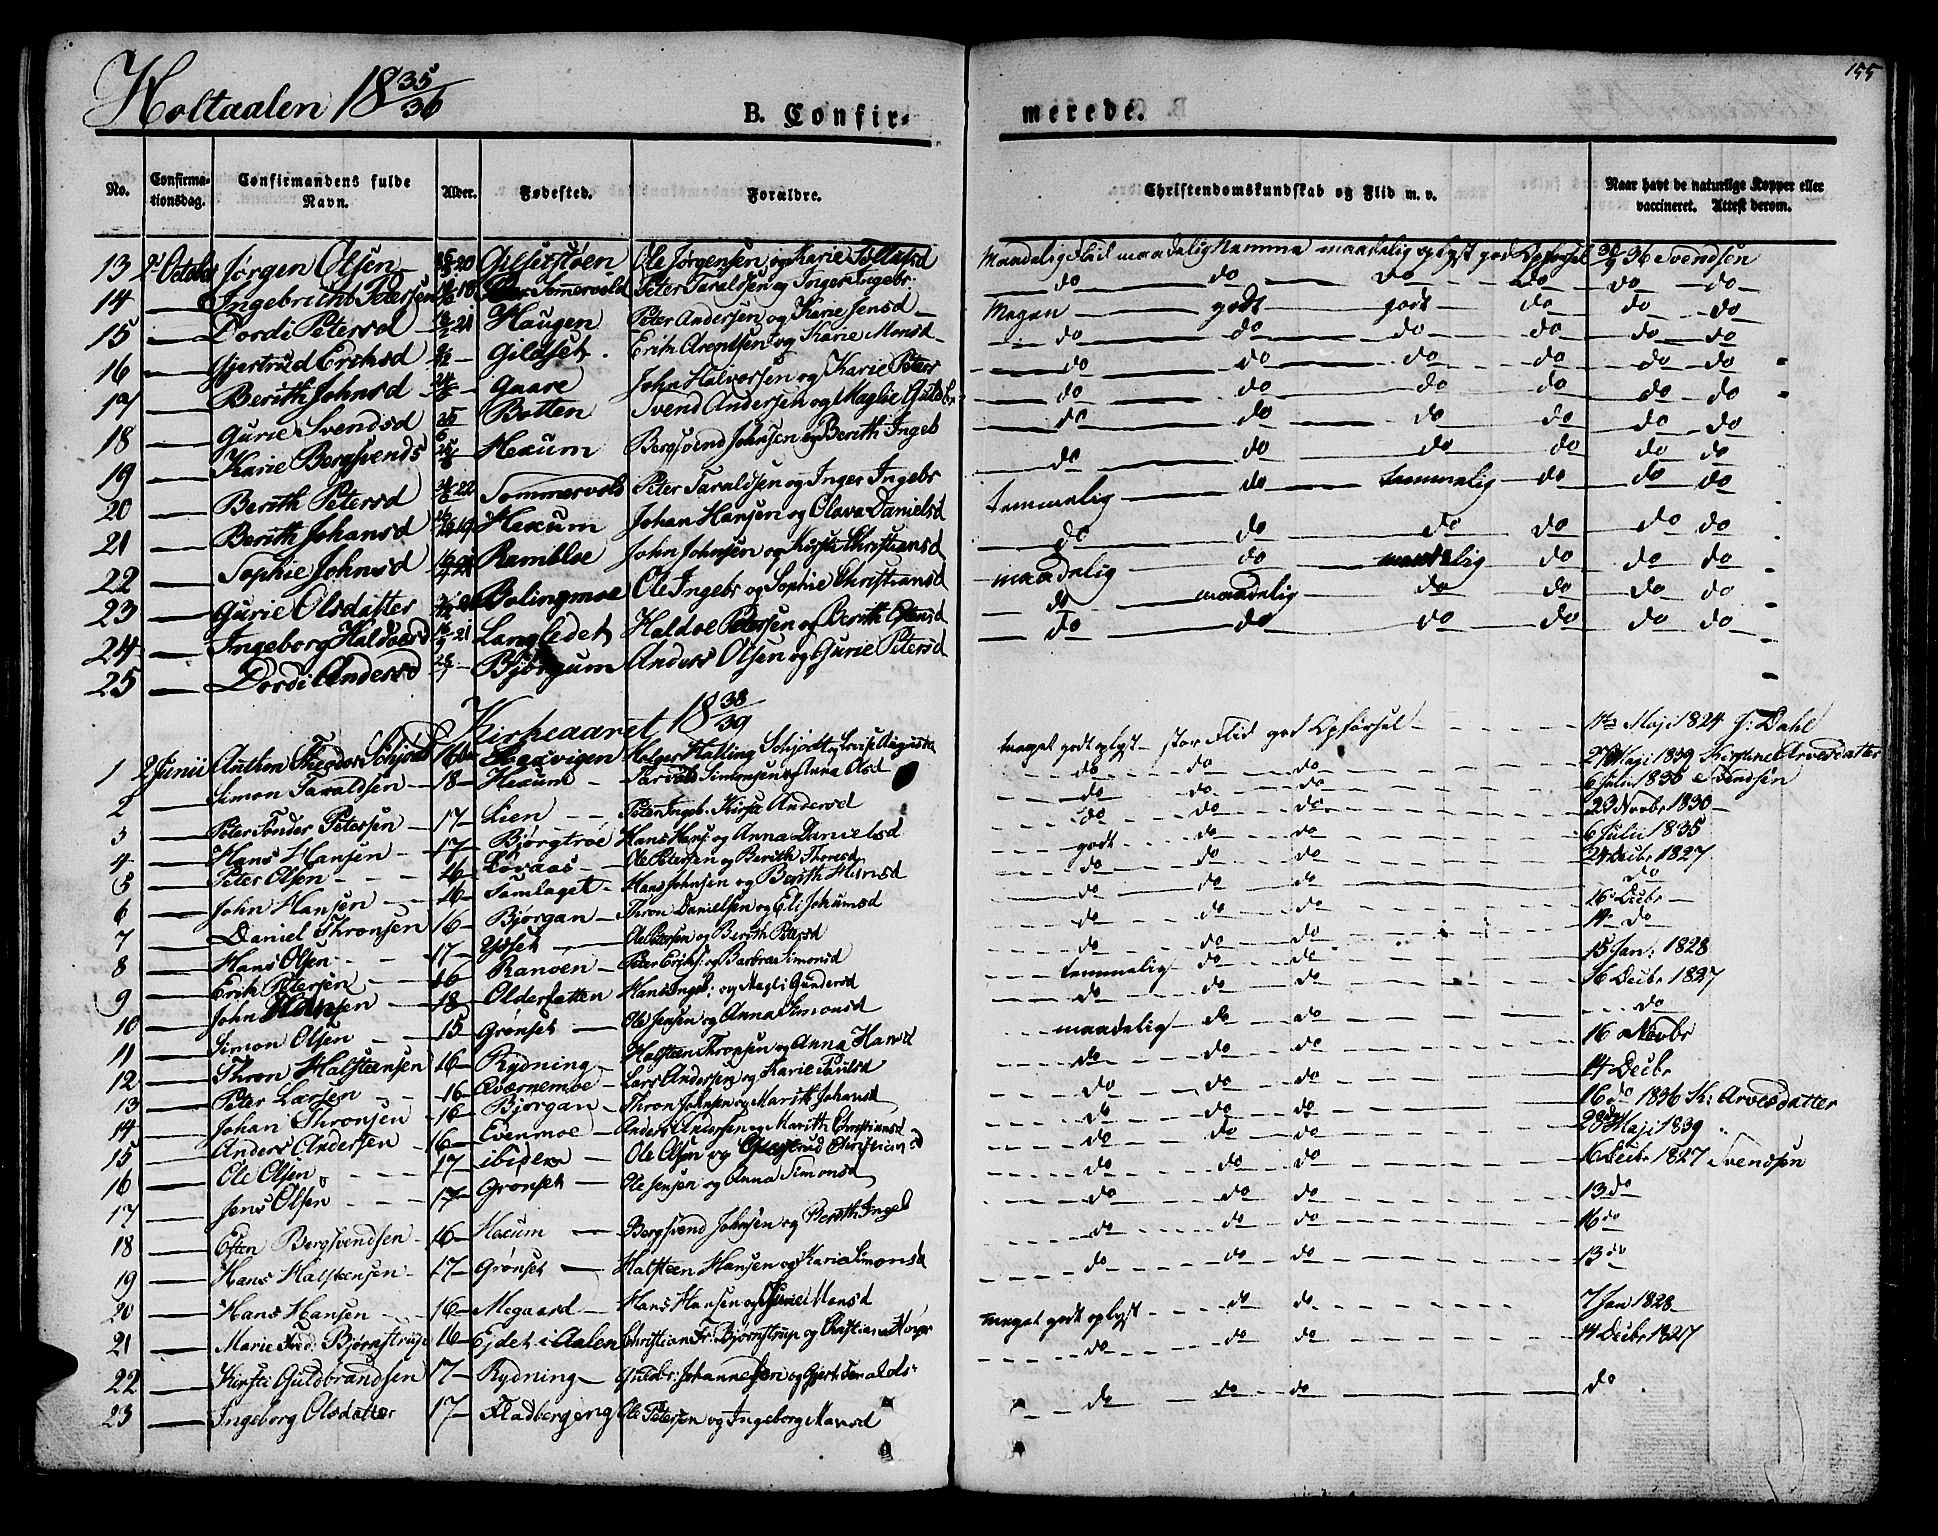 155
Holtaalen 18 35/36
B. Confirmerede.
No. Confirmationsdag. Confirmandens fulde Navn. Alder. Fødested. Forældre. Christendomskundskab og Flid m. v. Naar havt de naturlige Kopper eller vaccineret. Attest derom.
13 2 October Jørgen Olsen 20 Ole Jørgensen og Karie Maadelig Flid maadelig Nemme maadelig oplyst god Opførsel 36 Svendsen
14 — Ingebricht Petersen 18 Sommervold Peter Taraldsen og Inger Ingebr. do do do do do do
15 — Dordi Petersd 21 Haugen Peter Andersen og Karie Jensd Megen godt godt do do do
16 — Gjertrud Eriksd — Gildset Erich Arentsen og Karie Monsd do do do do do do
17 — Berith Johnsd — Gaare John Halvorsen og Karie Peters do do do do do do
18 — Gurie Svendsd Botten Svend Andersen og Maglie Guldbr do do do do do do
19 — Karie Bergsvends — Hexum Bergsvend Johnsen og Berith Ingeb do do do do do do
20 — Berith Petersd 22 Sommervold Peter Taraldsen og Inger Ingebr temmelig do temmelig do do do
21 — Berith Johansd 19 Hexum Johan Hansen og Olava Danielsd do do do do do do
22 — Sophie Johnsd Rambloe John Johnsen og Kirsti Christiansd maadelig do maadelig do do do
23 — Gurie Olsdatter Bolingmoe Ole Ingebr og Sophie Christiansd do maadelig do do do do
24 — Ingeborg Haldoesd 21 Langledet Haldoe Petersen og Berith Estensd do do do do do do
25 — Dordi Andersd — Bjørgum Anders Olsen og Gurie Petersd
Kirkeaaret 18 38/39
1 2 Junii Anthon Theodor Schjødt 16 Holger Halling Schjødt og Lovise Augusta meget godt oplyst stor Flid god Opførsel Maji 1824 J: Dahl
2 — Simon Taraldsen 18 Hexum Simonsen og Anna Olsd do do do 27 Maji 1839 Kirstine Arvesdatter
3 — Peter Tønder Petersen 17 Lien Peter Ingeb: Kirsti Andersd do do do 6 Julii 1835 Svendsen
4 — Hans Hansen 17 Bjørgtroe Hans Hans: og Anna Danielsd do do do 23 Novbr 1830
5 — Peter Olsen 16 Løvaas Ole Petersen og Berith Thoresd godt do do 6 Julii 1835
6 — John Hansen 16 Samlaget Hans Johnsen og Berith do do do 24 Decbr 1827
7 — Daniel Thronsen 16 Bjørgan Thron Danielsen og Eli Johansd do do do do
8 — Hans Olsen 17 Ole Petersen og Berith Petersd do do do 16 Decbr
9 — Erik Petersen 16 Ranoen Peter Eriks: og Barbra Simonsd do do do 14 do
10 — John Hansen 18 Hans Ingeb: og Magli Gundersd temmelig do do 15 Jan: 1828
11 — Simon Olsen 15 Grønset Ole Jensen og Anna Simonsd do do do 16 Decbr 1827
12 — Thron Halsteensen 16 Rydning Halsteen Thronsen og Anna Hansd maadelig do do do
13 — Peter Larsen 16 Qværnemoe Lars Andersen og Karie Paulsd do do do 16 Novbr
14 — Johan Thronsen 16 Bjørgan Thron Johnsen og Marith Johansd do do do 14 Decbr
15 — Anders Andersen 16 Evenmoe Anders Andersen og Marith Christiansd do do do 16 do 1836 K: Arvesdatter
16 — Ole Olsen 17 ibidem Ole Olsen og Gjertrud Christiansd do do do 28 Maji 1839
17 — Jens Olsen 17 Grønset Ole Jensen og Anna Simonsd do do do 16 Decbr 1827 Svendsen
18 — Esten Bergsvendsen 16 Hexum Bergsvend Johnsen og Berith Ingeb do do do 13 do
19 — Hans Halsteensen 17 Grønset Halsteen Hansen og Karie Simonsd do do do 16 do
20 — Hans Hansen 16 Megaard Hans Hansen og Gurie Monsd do do do 13 do
21 — Marie Fred: Bjørnstrup 16 Ejdet i Aalen Christian Fr: Bjørnstrup og Christiana meget godt oplyst do do 7 Jan 1828
22 — Kirsti Guldbrandsen 17 Rydning Guldbr: Johannesen og Gjert: do do do 14 Decbr 1827
23 — Ingeborg Olsdatter 17 Fladbergeng Ole Petersen og Ingeborg Monsd do do do do